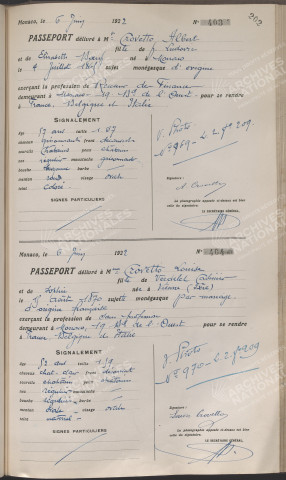 202
Monaco, le 6 Juin 1922 N° 403
PASSEPORT délivré à M. Crovetto Albert
fils de f. Ludovic
et Elisabeth né à Monaco
le 4 Juillet sujet monégasque d'origine
exerçant la profession de Receveur de Finances
demeurant à Monaco - 19 - Bd de l'Ouest - pour se rendre
France - Belgique et Italie
SIGNALEMENT
ans taille 1.67
cheveux grisonnants front découvert
sourcils châtains yeux
nez régulier moustache grisonnante
bouche moyenne barbe
menton rond visage ovale
teint coloré
SIGNES PARTICULIERS
V. Photo
N° 969 - L. 2 209.
Signature :
La photographie apposée ci-dessus est bien
celle du signataire.
LE SECRÉTAIRE GÉNÉRAL,
Monaco, le 6 Juin 1922 N° 404
PASSEPORT délivré à M Crovetto Louise
fille de
et Sophie née à Vienne (Isère)
le 5 Août 1870 sujette monégasque par mariage
d'origine française
exerçant la profession de sans profession
demeurant à Monaco - 19 Bd de l'Ouest pour se rendre
France - Belgique et Italie
SIGNALEMENT
52 ans taille 1.59
cheveux chat. clair front découvert
sourcils châtains yeux
nez régulier
bouche régulière barbe
menton rond visage ovale
teint naturel
SIGNES PARTICULIERS
V. Photo
N° 970 - L. 2 209
Signature :
Louise Crovetto
La photographie apposée ci-dessus est bien
celle du signataire.
LE SECRÉTAIRE GÉNÉRAL,